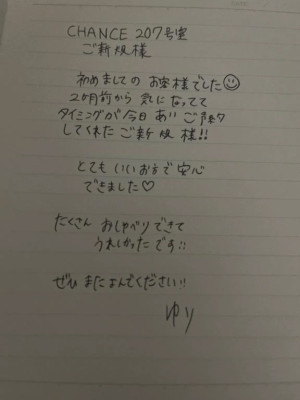 CHANCE 207号室
ご新規様
初めましての お客様でした
2ヶ月前から 気になってて
タイミングが今日 あい ご予約
してくれた ご新規 様!!
とても いいお方で 安心
できました♡
たくさん おしゃべりできて
うれしかった です!!
ぜひ またよんでください!!
ゆり